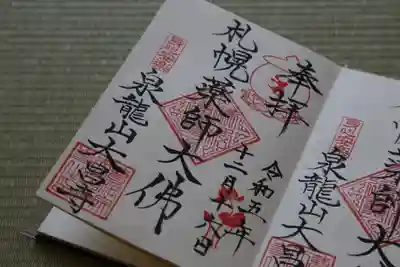 奉拝
令和五年
十二月日
札幌薬師大佛
泉龍山大昌寺
薬師大
泉龍山大昌